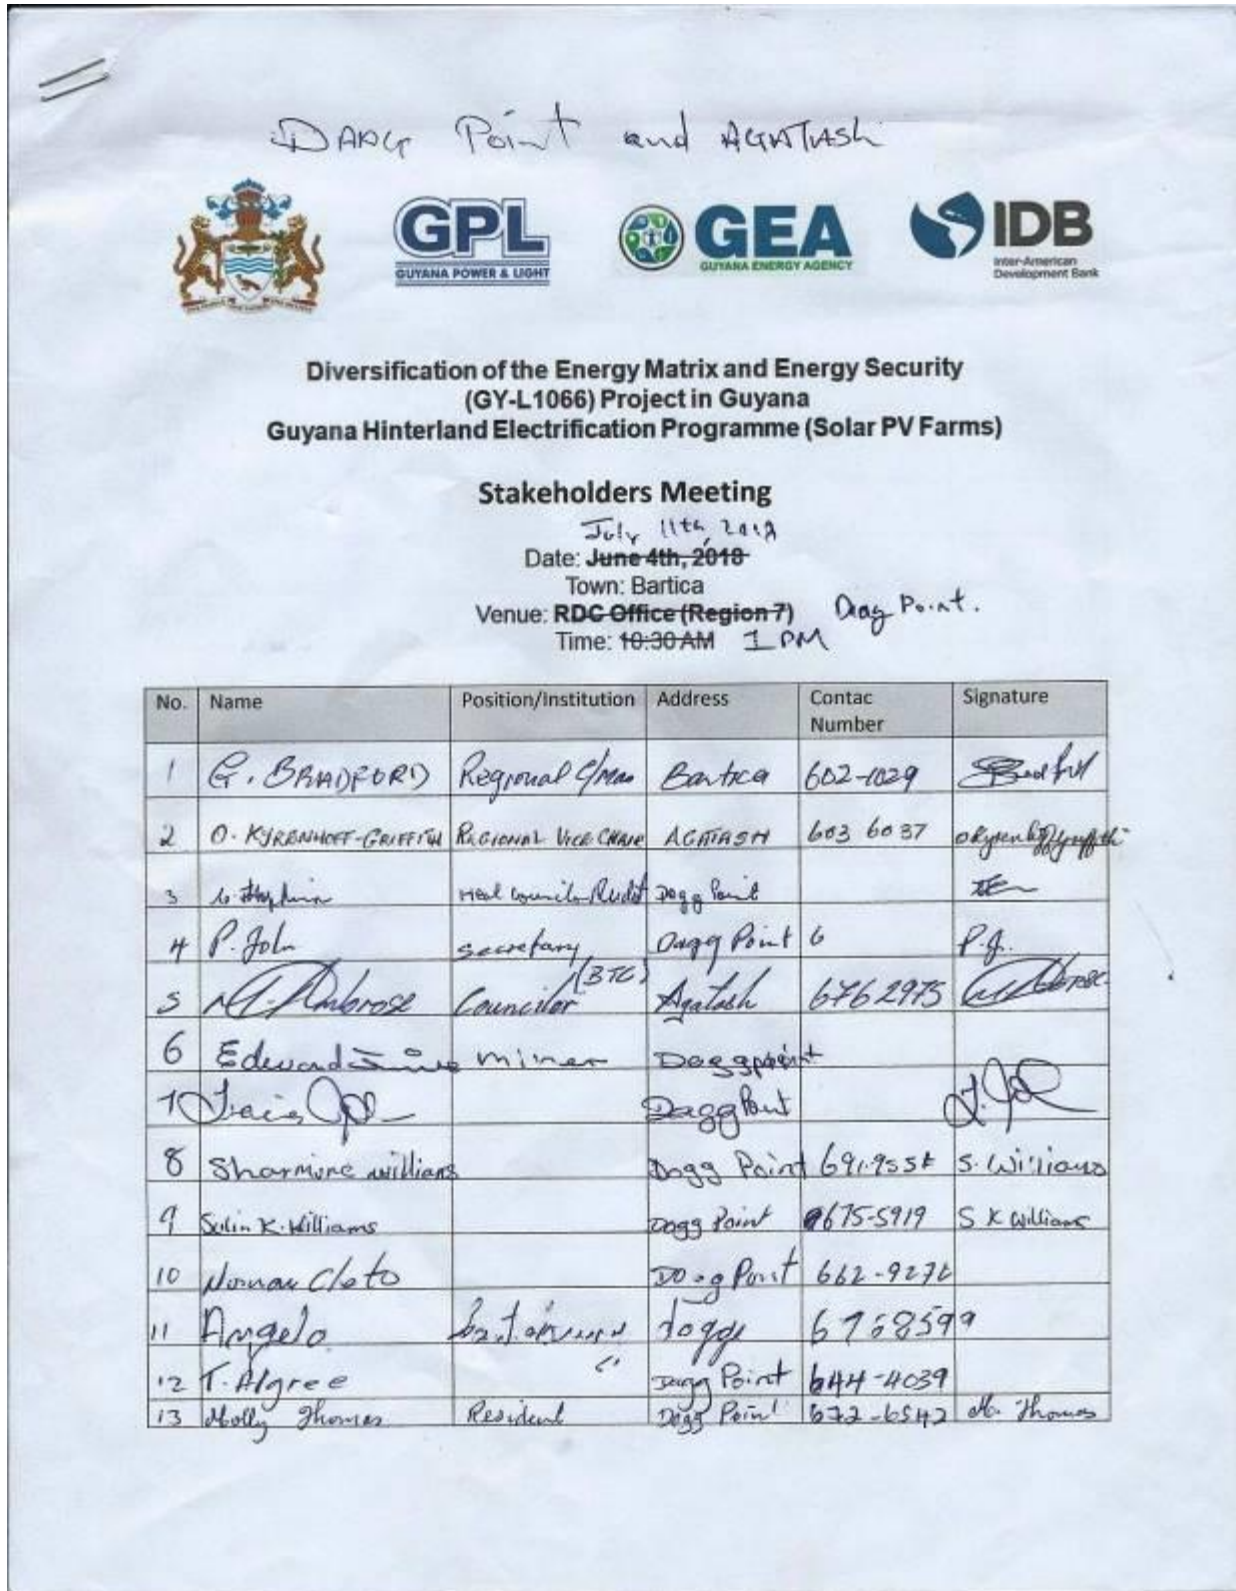 DAAG Point and AGATASH
GPL
GUYANA POWER & LIGHT
GEA
GUYANA ENERGY AGENCY
IDB
Inter-American
Development Bank
Diversification of the Energy Matrix and Energy Security
(GY-L1066) Project in Guyana
Guyana Hinterland Electrification Programme (Solar PV Farms)
Stakeholders Meeting
July 11th, 2018
Date: June 4th, 2018
Town: Bartica
Venue: RDC Office (Region 7) Dagg Point.
Time: 10:30 AM 1 PM
No. Name Position/Institution Address Contac Number Signature
1 G. BRADFORD Regional C/Man Bartica 602-1029
2 O. KYRENHOFF-GRIFFITH REGIONAL VICE CHAIR AGATASH 603 6037
3 Dagg Point
4 P. John Secretary Dagg Point 6 P.J.
5 Ambrose Councilor (BTC) Agatash 676 2975
6 Edward miner Daggpoint
7 Dagg Point
8 Sharmine williams Dagg Point S. Williams
9 K. Williams Dagg Point 675-5919 S K Williams
10 Norman Cleto Dagg Point
11 Angelo
12 T. Algree Dagg Point 644-4039
13 Molly Thomas Resident Dagg Point 672-6542 M. Thomas